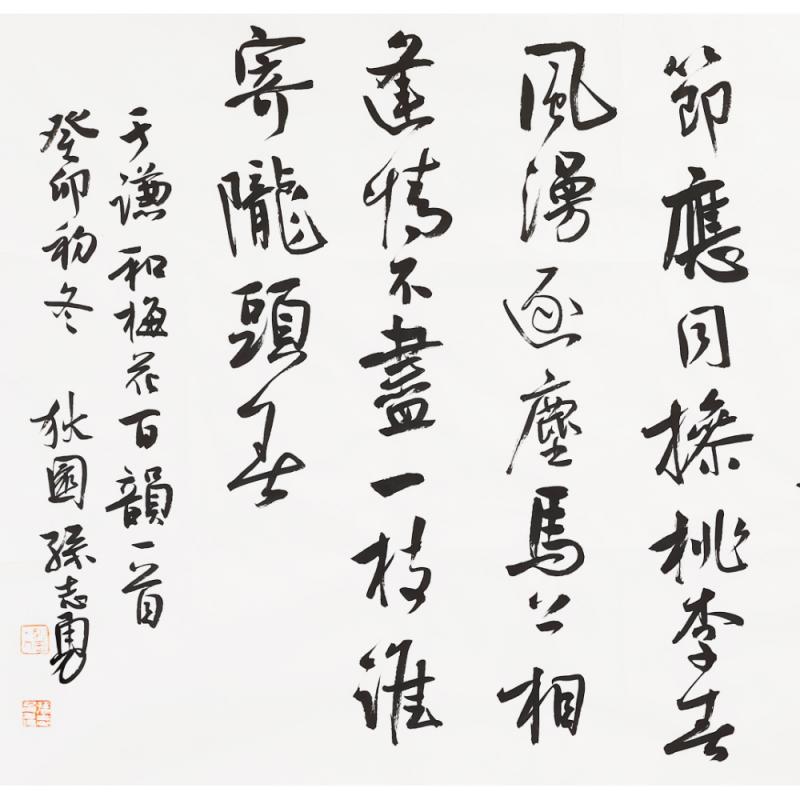 節應同操桃李春
風漫逐塵馬上相
逢情不盡一枝誰
寄隴頭春
于謙和梅花百韻一首
癸卯初冬 狄園 孫志勇